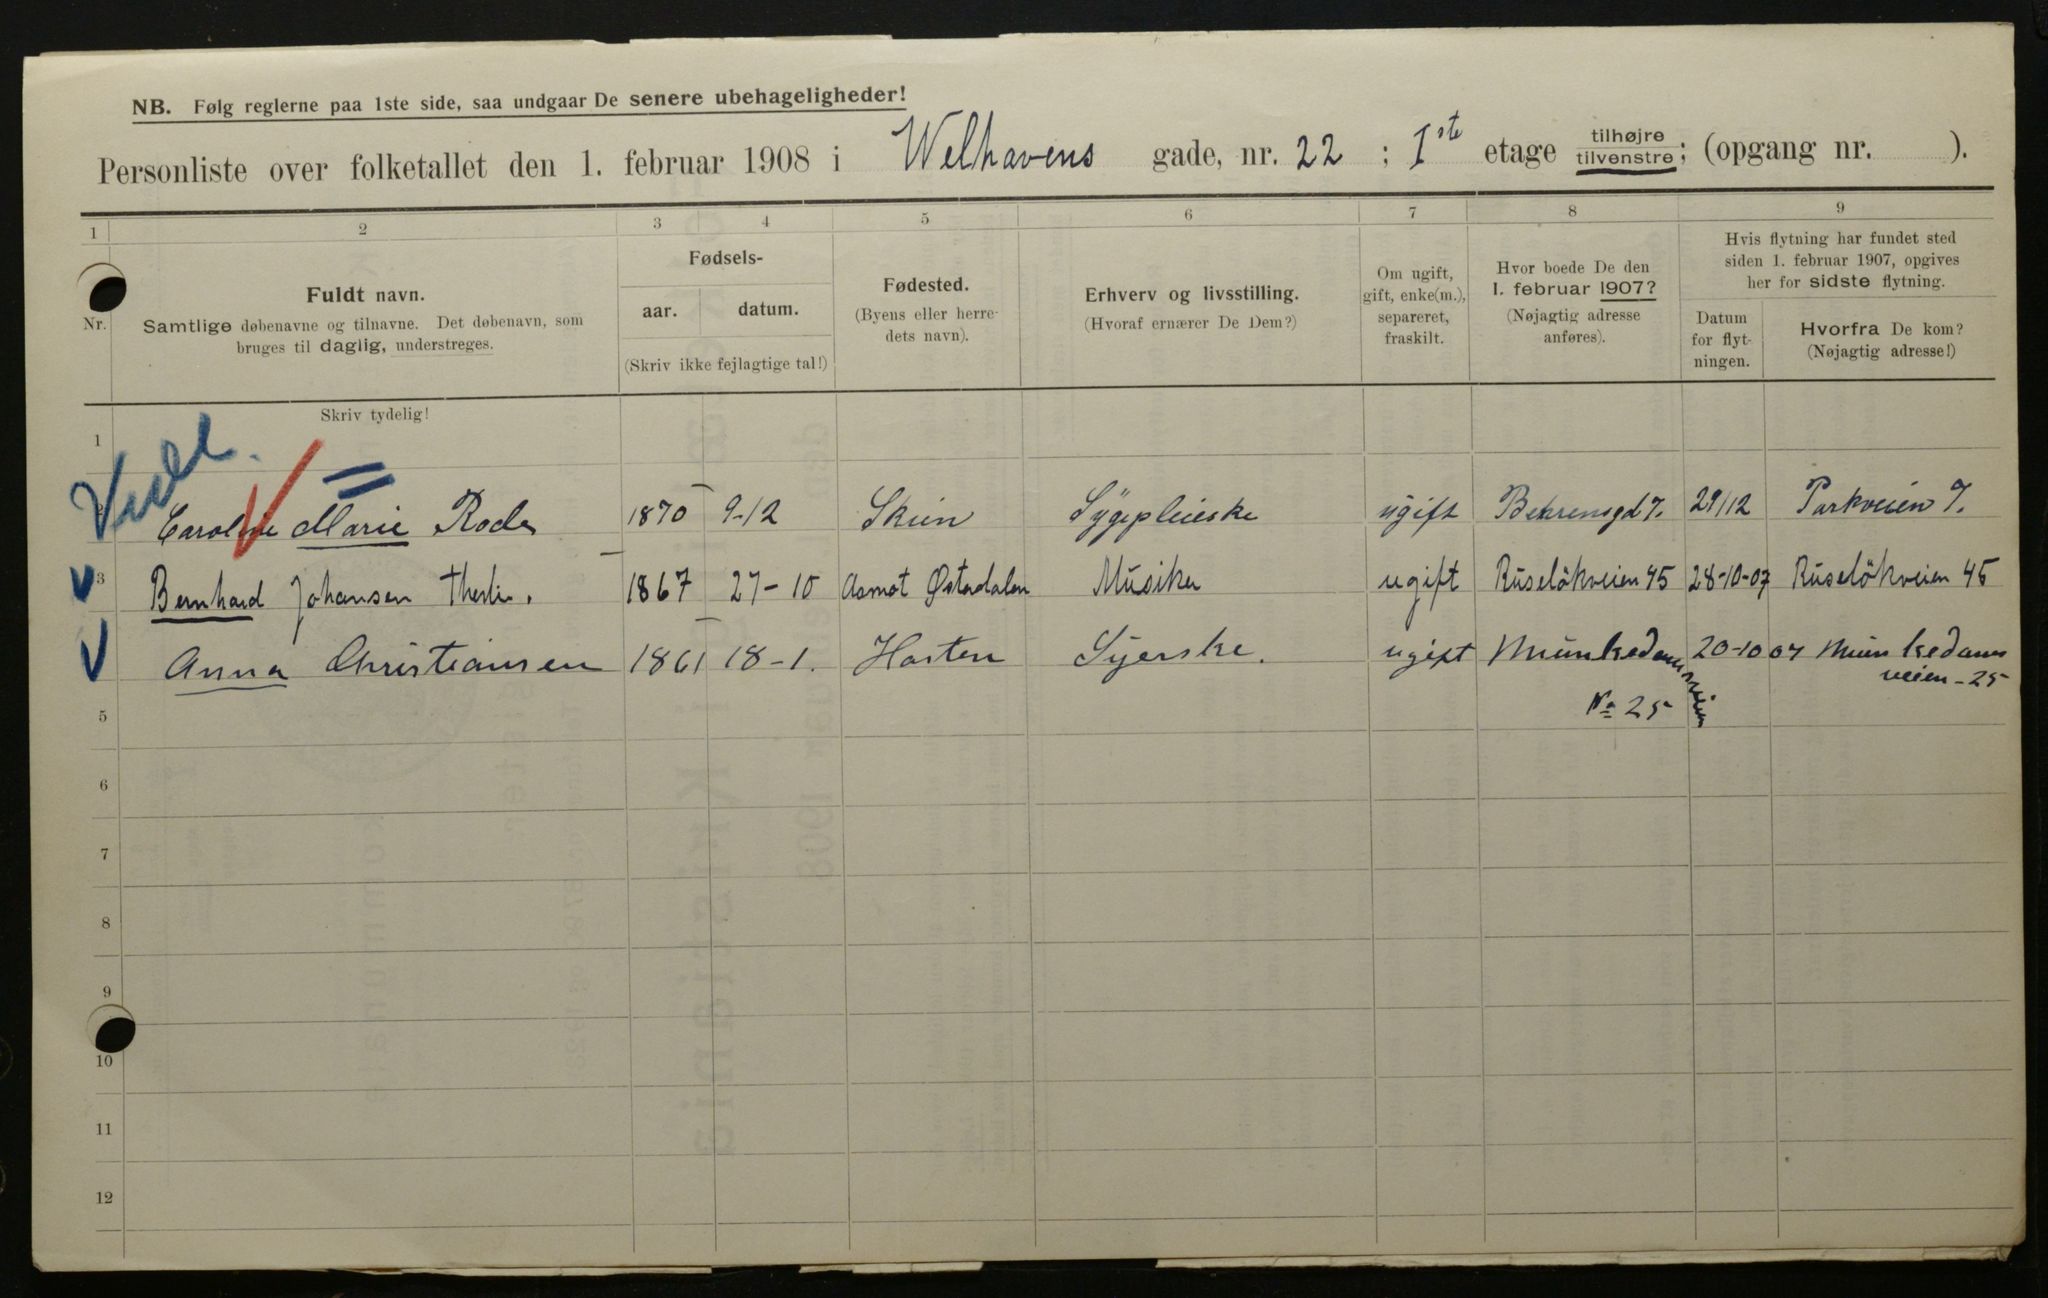 NB. Følg reglerne paa 1ste side, saa undgaar De senere ubehageligheder!
Personliste over folketallet den 1. februar 1908 i Welhavens gade, nr. 22 ; 1ste etage tilhøjre tilvenstre; (opgang nr. ).
1 2 3 4 5 6 7 8 9
Nr.
Fuldt navn.
Samtlige døbenavne og tilnavne. Det døbenavn, som
bruges til daglig, understreges.
Fødsels-
aar. datum.
(Skriv ikke fejlagtige tal!)
Fødested.
(Byens eller herre-
dets navn).
Erhverv og livsstilling.
(Hvoraf ernærer De Dem?)
Om ugift,
gift, enke(m.),
separeret,
fraskilt.
Hvor boede De den
1. februar 1907?
(Nøjagtig adresse
anføres).
Hvis flytning har fundet sted
siden 1. februar 1907, opgives
her for sidste flytning.
Datum
for flyt-
ningen.
Hvorfra De kom?
(Nøjagtig adresse!)
Skriv tydelig!
1
Caroline Marie Rode 1870 9-12 Skien Sygepleieske ugift Behrensgd 7. 29/12 Parkveien 7.
3 Bernhard Johansen 1867 27-10 Aamot Østerdalen Musiker ugift Ruseløkveien 45 28-10-07 Ruseløkveien 45
Anna Christiansen 1861 18-1. Horten Syerske. ugift Munkedamsveien 20-10 07 Munkedams
veien-25
5 No 25
6
7
8
9
10
11
12